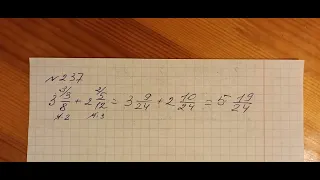 №237
3 3/8 + 2 5/12 = 3 9/24 + 2 10/24 = 5 19/24